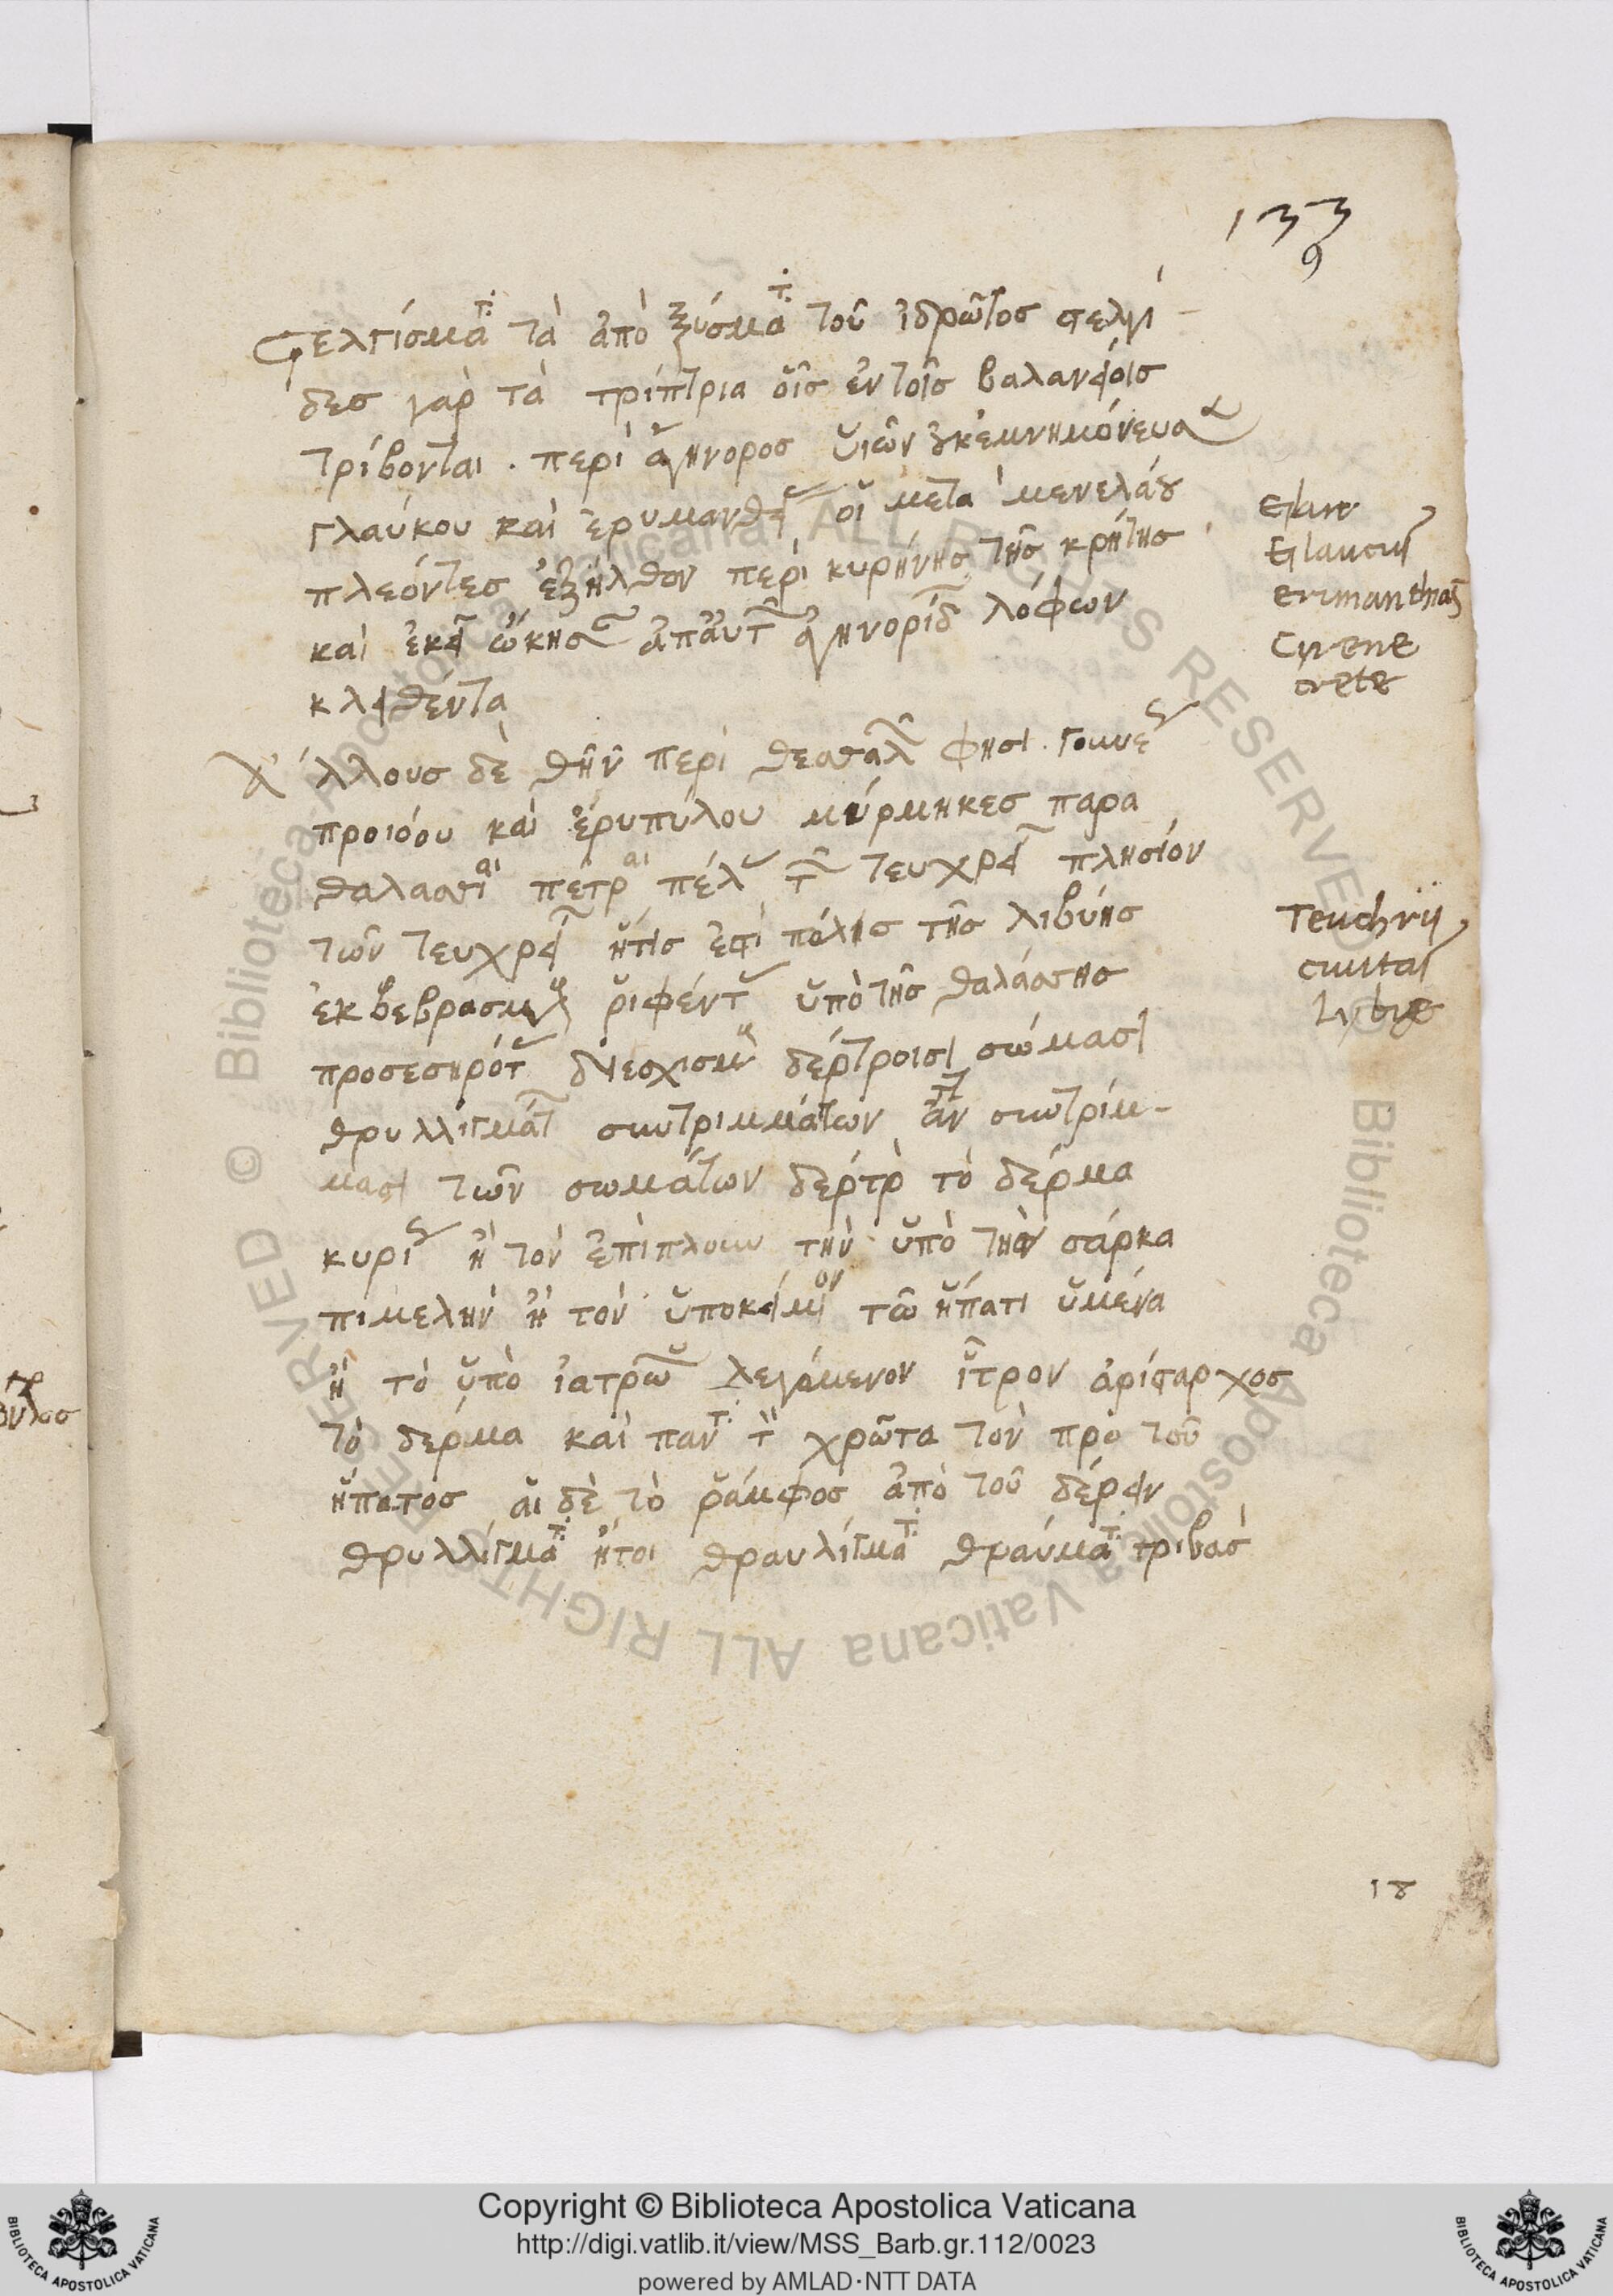 133
9
στελγίσματα τὰ ἀπὸ ξύσματα τοῦ ἱδρῶτος στελγί-
δες γὰρ τὰ τρίπτρια οἷς ἐν τοῖς βαλανείοις
τρίβονται . περὶ ἀγήνορος υἱῶν
γλαύκου καὶ ἐρυμανθ οἳ μετὰ μενελάου
πλεόντες ἐξῆλθον περὶ κυρήνης τῆς κρήτης
καὶ ἐκεῖ ᾤκησ ἀπ αὐτ ἀγηνορίδ λόφων
κλειθέντα
Ἄλλους δὲ θῆν περὶ θεσσαλ φησι . γουνε
προθόου καὶ ἐρυπύλου μύρμηκες παρα
θαλασσίαι πέτραι πέλ τ τευχρεῖ πλησίον
τῶν τευχρεῖ ἥτις ἐστὶ πόλις τῆς λιβύης
ἐκβεβρασμ ῥιφέντ ὑπὸ τῆς θαλάσσης
προσεσηρότ διεσχισμ δέρτροισι σώμασι
θρυλλίγματ συντριμμάτων ἀν συντρίμ-
μασι τῶν σωμάτων δέρτρ τὸ δέρμα
κυρί ἢ τὸν ἐπίπλουν τὴν ὑπὸ τὴν σάρκα
πιμελὴν ἢ τὸν ὑποκείμον τῶ ἥπατι ὑμένα
ἢ τὸ ὑπὸ ἰατρῶν λεγόμενον ἦτρον ἀρίσταρχος
τὸ δέρμα καὶ παντ τ χρῶτα τὸν πρὸ τοῦ
ἥπατος οἱ δὲ τὸ ῥάμφος ἀπὸ τοῦ δέρειν
θρυλλίγματα ἤτοι θραυλίγματα θραύματα τριβας
Glaucus
erimanthas
Cyrene
crete
Teuchrii
ciuitas
Lybie
18
Copyright © Biblioteca Apostolica Vaticana
http://digi.vatlib.it/view/MSS_Barb.gr.112/0023
powered by AMLAD·NTT DATA
BIBLIOTECA APOSTOLICA VATICANA
BIBLIOTECA APOSTOLICA VATICANA
© Biblioteca Apostolica Vaticana ALL RIGHTS RESERVED
© Biblioteca Apostolica Vaticana ALL RIGHTS RESERVED